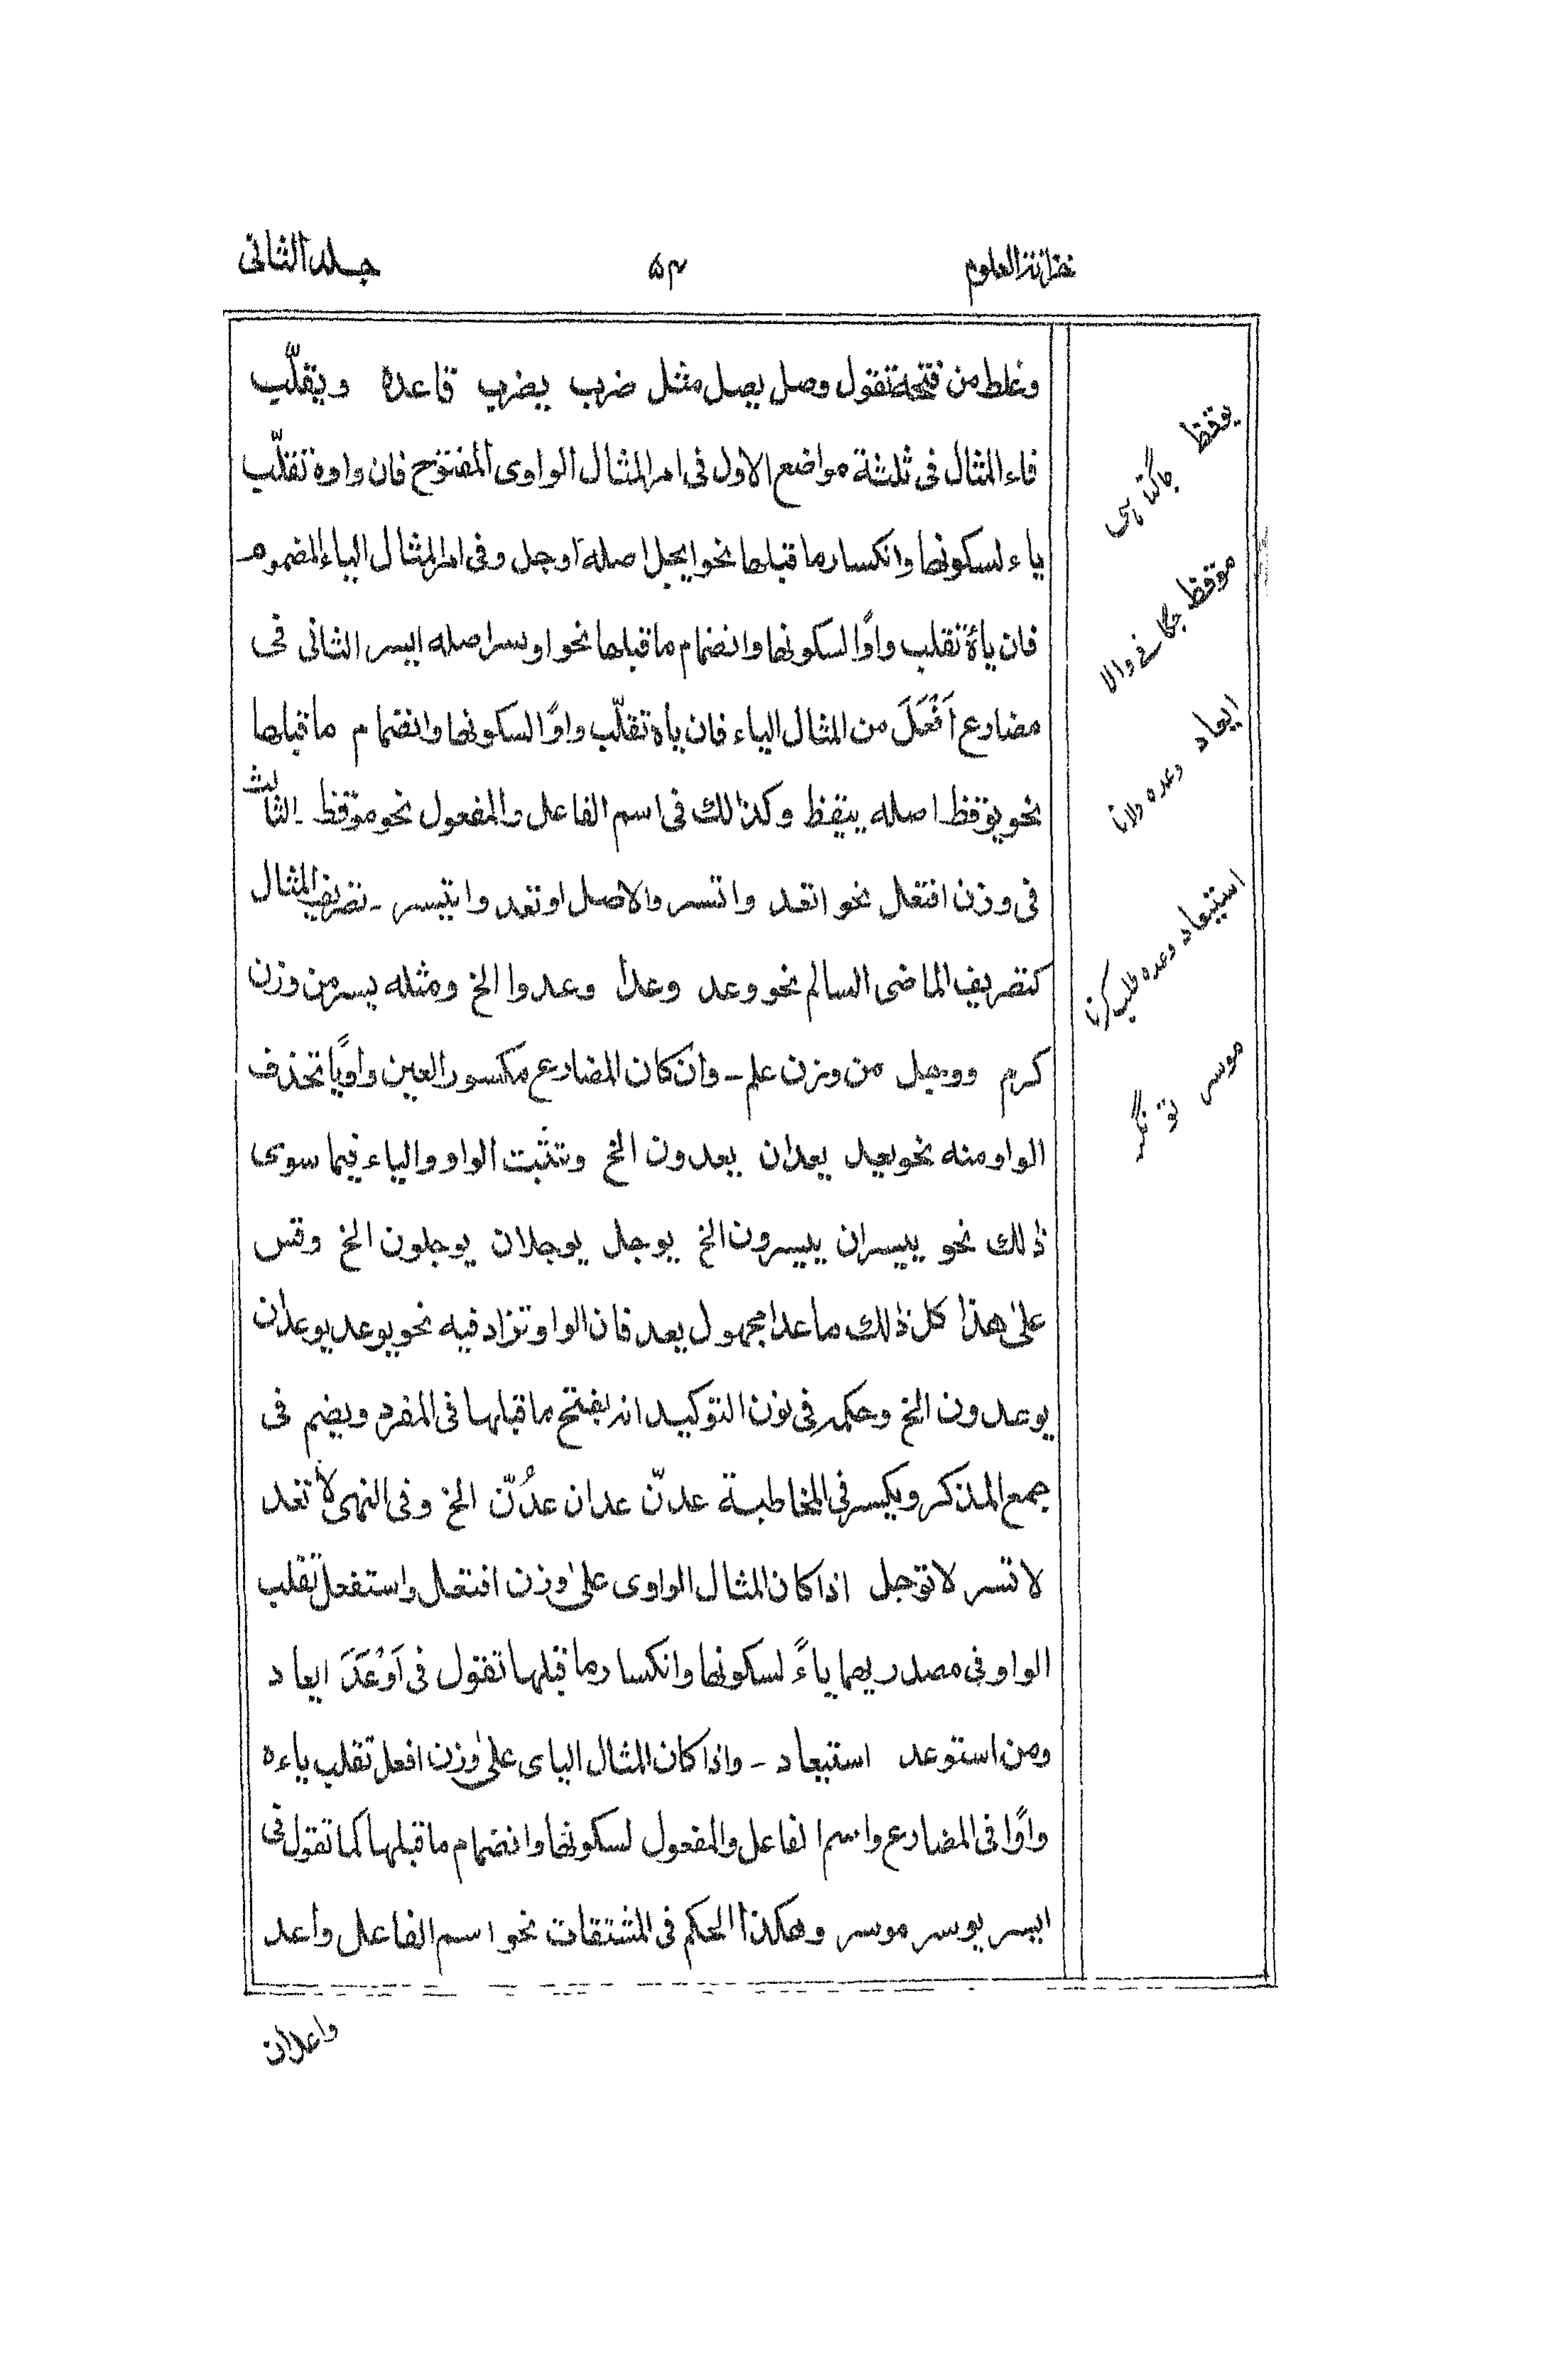 خزانة العلوم ۵۴ جلد الثانی
وغلط من فتحة تقول وصل یصل مثل ضرب یضرب قاعده وتقلّب
فاء المثال فی ثلثة مواضع الاول فی امر المثال الواوی المفتوح فان واوه تقلّب
یاء لسکونها وانکسار ما قبلها نحو ایجل اصله اوجل وفی امر المثال الیاء المضموم
فان یأه تقلب واوًا لسکونها وانضمام ما قبلها نحو اوسر اصله ایسر الثانی فی
مضارع اَفْعَلَ من المثال الیاء فان یأه تقلّب واوًا لسکونها وانضمام ما قبلها
نحو یوقظ اصله ییقظ وکذالك فی اسم الفاعل والمفعول نحو موقظ - الثالث
فی وزن افتعل نحو اتعد واتسر والاصل اوتعد وایتسر - تصریف المثال
کتصریف الماضی السالم نحو وعد وعدا وعدوا الخ ومثله یسر من وزن
کرم ووجل من وزن علم - وان کان المضارع مکسور العین واویًا تحذف
الواو منه نحو یعد یعدان یعدون الخ وتثبت الواو والیاء فیما سوی
ذلك نحو ییسران ییسرون الخ یوجل یوجلان یوجلون الخ وقس
علیٰ هذا کل ذلك ما عدا مجهول یعد فان الواو تزاد فیه نحو یوعد یوعدان
یوعدون الخ وحکمه فی نون التوکید انه یفتح ما قبلها فی المفرد ویضم فی
جمع المذکر ویکسر فی المخاطبة عدنّ عدان عدُنّ الخ وفی النهی لا تعد
لا تسر لا توجل اذا کان المثال الواوی علیٰ وزن افتعل واستفعل تقلب
الواو فی مصدریهما یاءً لسکونها وانکسار ما قبلها تقول فی اَوْعَدَ ایعاد
ومن استوعد استیعاد - واذا کان المثال الیای علیٰ وزن افعل تقلب یاءه
واوًا فی المضارع واسم الفاعل والمفعول لسکونها وانضمام ما قبلها کما تقول فی
ایسر یوسر موسر وهکذا الحکم فی المشتقات نحو اسم الفاعل واعد
واعدان
یوقظ جاگتا ہی
موقظ جگانے والا
ایعاد وعده دلانا
استیعاد وعده طلب کرنا
موسر تونگر